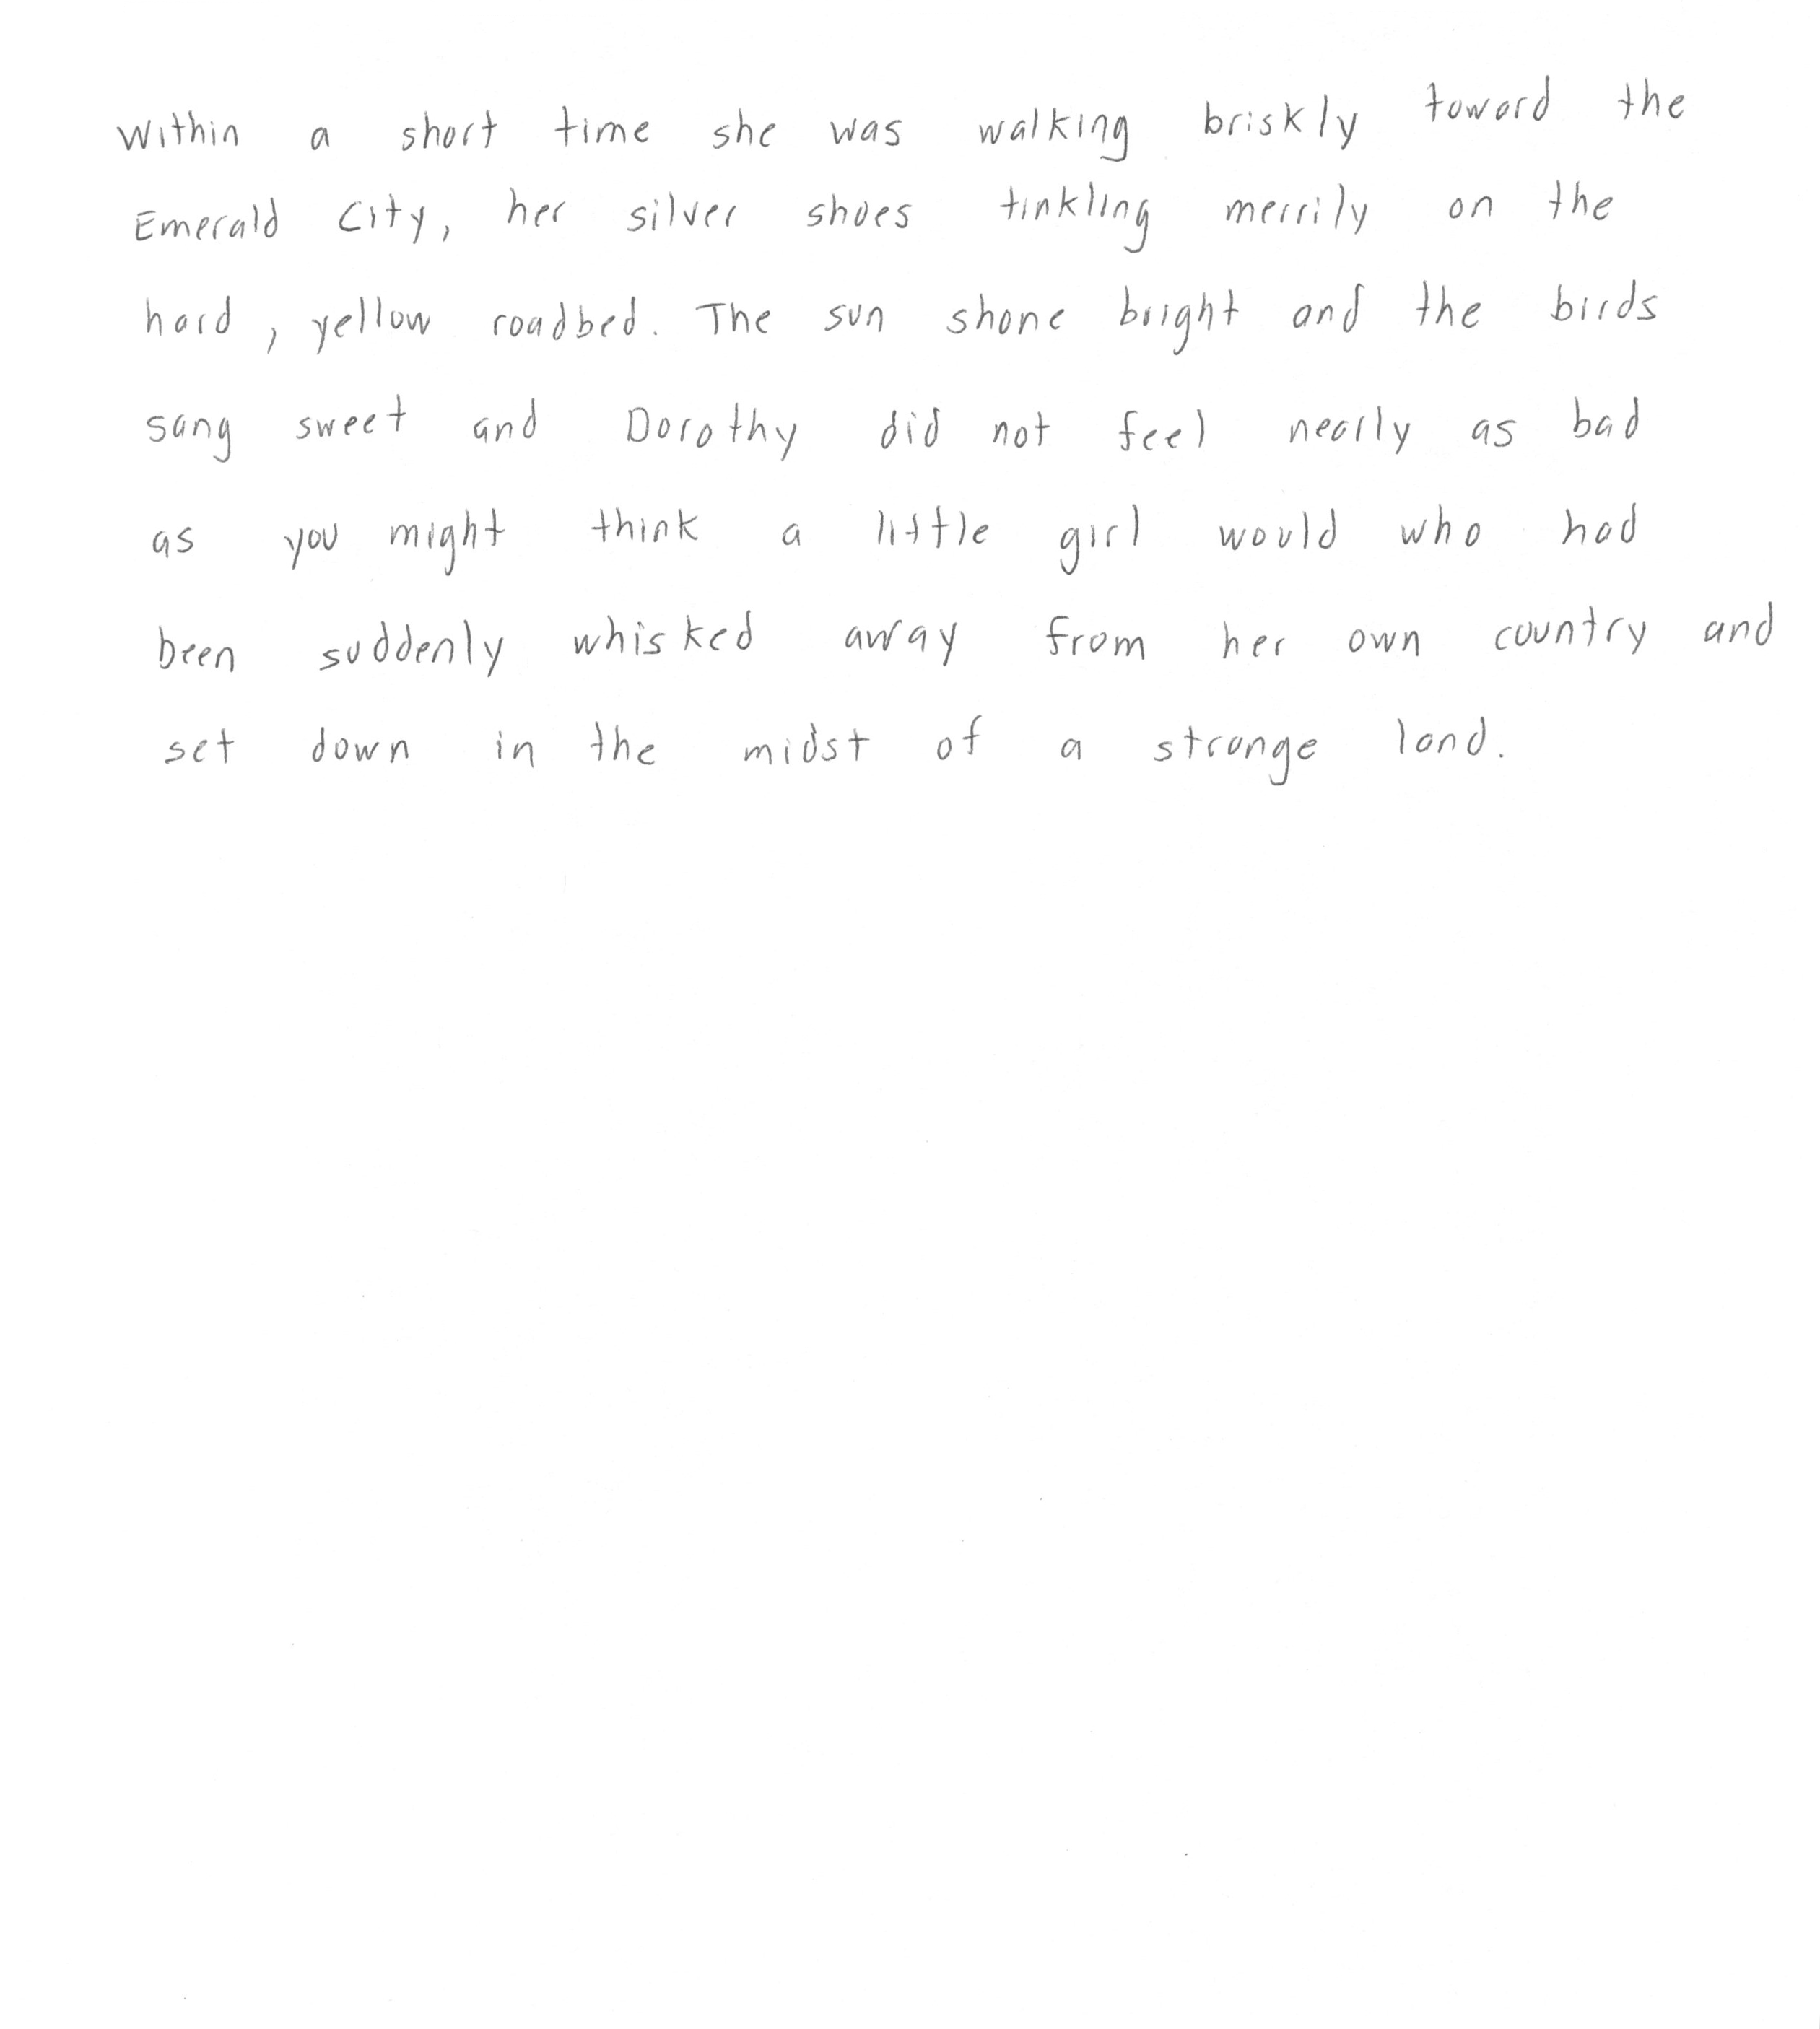 Within a short time she was walking briskly toward the
Emerald City, her silver shoes tinkling merrily on the
hard, yellow roadbed. The sun shone bright and the birds
sang sweet and Dorothy did not feel nearly as bad
as you might think a little girl would who had
been suddenly whisked away from her own country and
set down in the midst of a strange land.